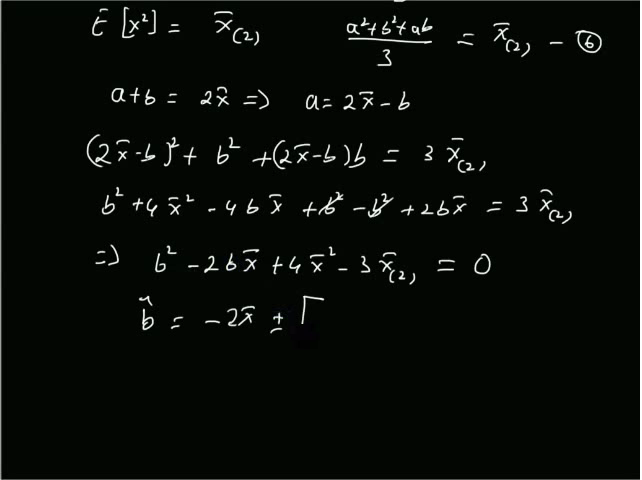 E [x²] = x̄₍₂₎   (a²+b²+ab)/3 = x̄₍₂₎ – ⑥
a+b = 2x̄ => a = 2x̄ – b
(2x̄–b)² + b² + (2x̄–b)b = 3 x̄₍₂₎
b² + 4x̄² – 4bx̄ + b² – b² + 2bx̄ = 3 x̄₍₂₎
=> b² – 2bx̄ + 4x̄² – 3x̄₍₂₎ = 0
b̂ = – 2x̄ ± √